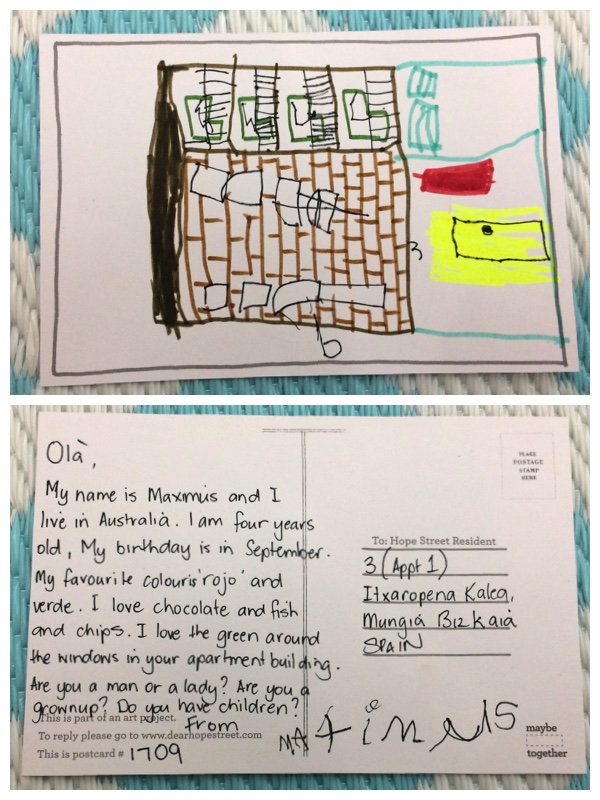 3
Olà,
My name is Maximus and I
live in Australià. I am four years
old, My birthday is in September.
My favourite colour is 'rojo' and
verde. I love chocolate and fish
and chips. I love the green around
the windows in your apartment building.
Are you a man or a lady? Are you a
grownup? Do you have children?
This is part of an art project.
From
To reply please go to www.dearhopestreet.com
This is postcard # 1709
PLACE
POSTAGE
STAMP
HERE
To: Hope Street Resident
3 (Appt 1)
Itxaropena Kalea,
Mungia Bizkaià
SPAIN
maybe
together